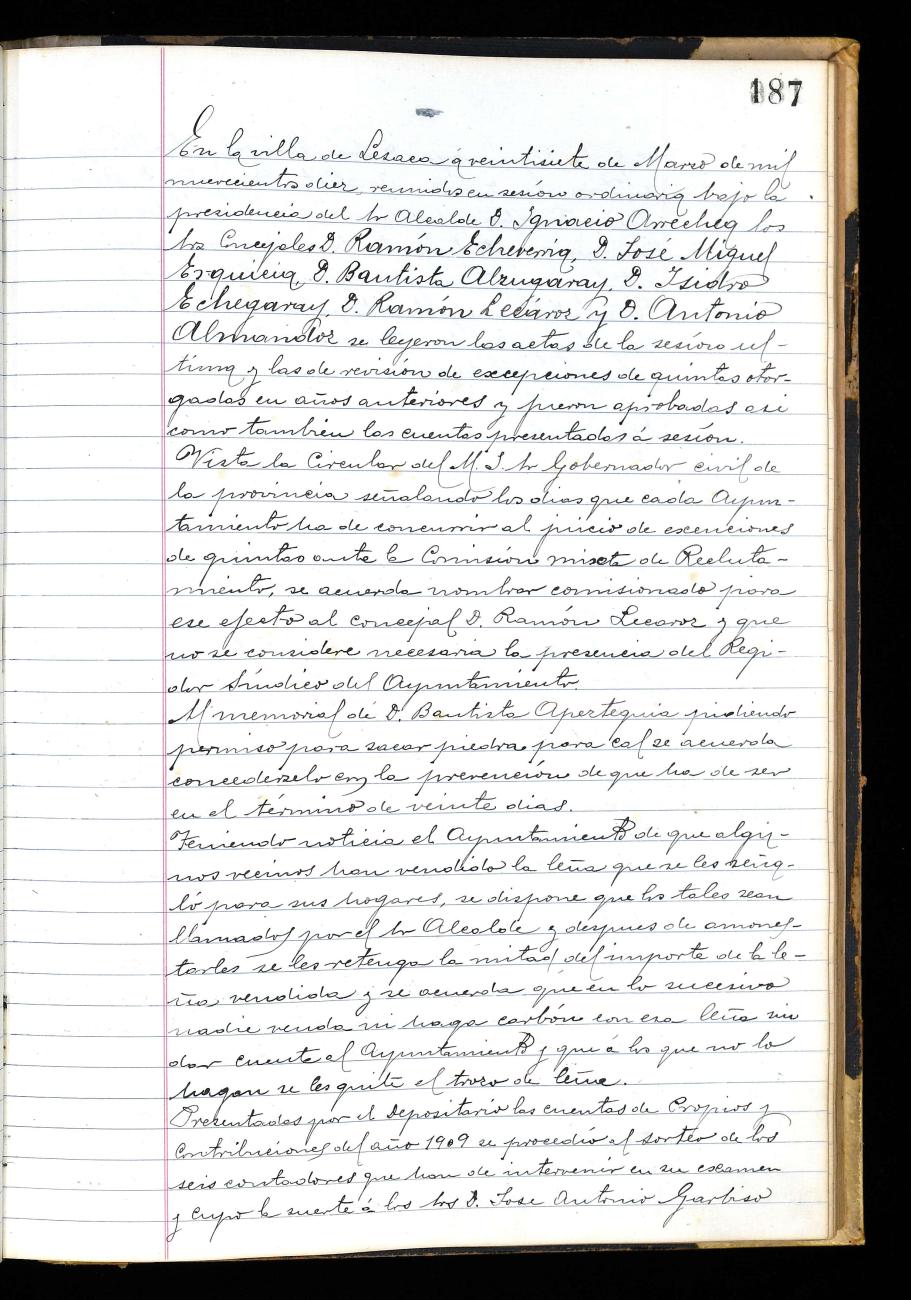 187
En la villa de Lesaca á veintisiete de Marzo de mil
nuevecientos diez reunidos en sesión ordinaria bajo la
presidencia del Sr Alcalde D. Ignacio Arrechea los
Srs Concejales D. Ramón Echeverria, D. José Miguel
Ezquicia, D. Bautista Alzugaray, D. Isidro
Echegaray, D. Ramón Lecároz y D. Antonio
Almandoz se leyeron las actas de la sesión ul-
tima y las de revisión de excepciones de quintas otor-
gadas en años anteriores y fueron aprobadas asi
como tambien las cuentas presentadas á sesión.
Vista la Circular del M. I. Sr Gobernador civil de
la provincia señalando los dias que cada Ayun-
tamiento ha de concurrir al juicio de exenciones
de quintas ante la Comisión mixta de Recluta-
miento, se acuerda nombrar comisionado para
ese efecto al concejal D. Ramón Lecaroz y que
no se considere necesaria la presencia del Regi-
dor Síndico del Ayuntamiento.
Al memorial de D. Bautista Apezteguia pidiendo
permiso para sacar piedra para cal se acuerda
concederselo con la prevención de que ha de ser
en el término de veinte dias.
Teniendo noticia el Ayuntamiento de que algu-
nos vecinos han vendido la leña que se les seña-
ló para sus hogares, se dispone que los tales sean
llamados por el Sr Alcalde y despues de amones-
tarles se les retenga la mitad del importe de la le-
ña vendida y se acuerda que en lo sucesivo
nadie venda ni haga carbón con esa leña sin
dar cuenta al Ayuntamiento y que á los que no lo
hagan se les quite el trozo de leña.
Presentadas por el Depositario las cuentas de Propios y
Contribuciones del año 1909 se procedió al sorteo de los
seis contadores que han de intervenir en su examen
y cupo la suerte á los Srs D. Jose Antonio Garbiso